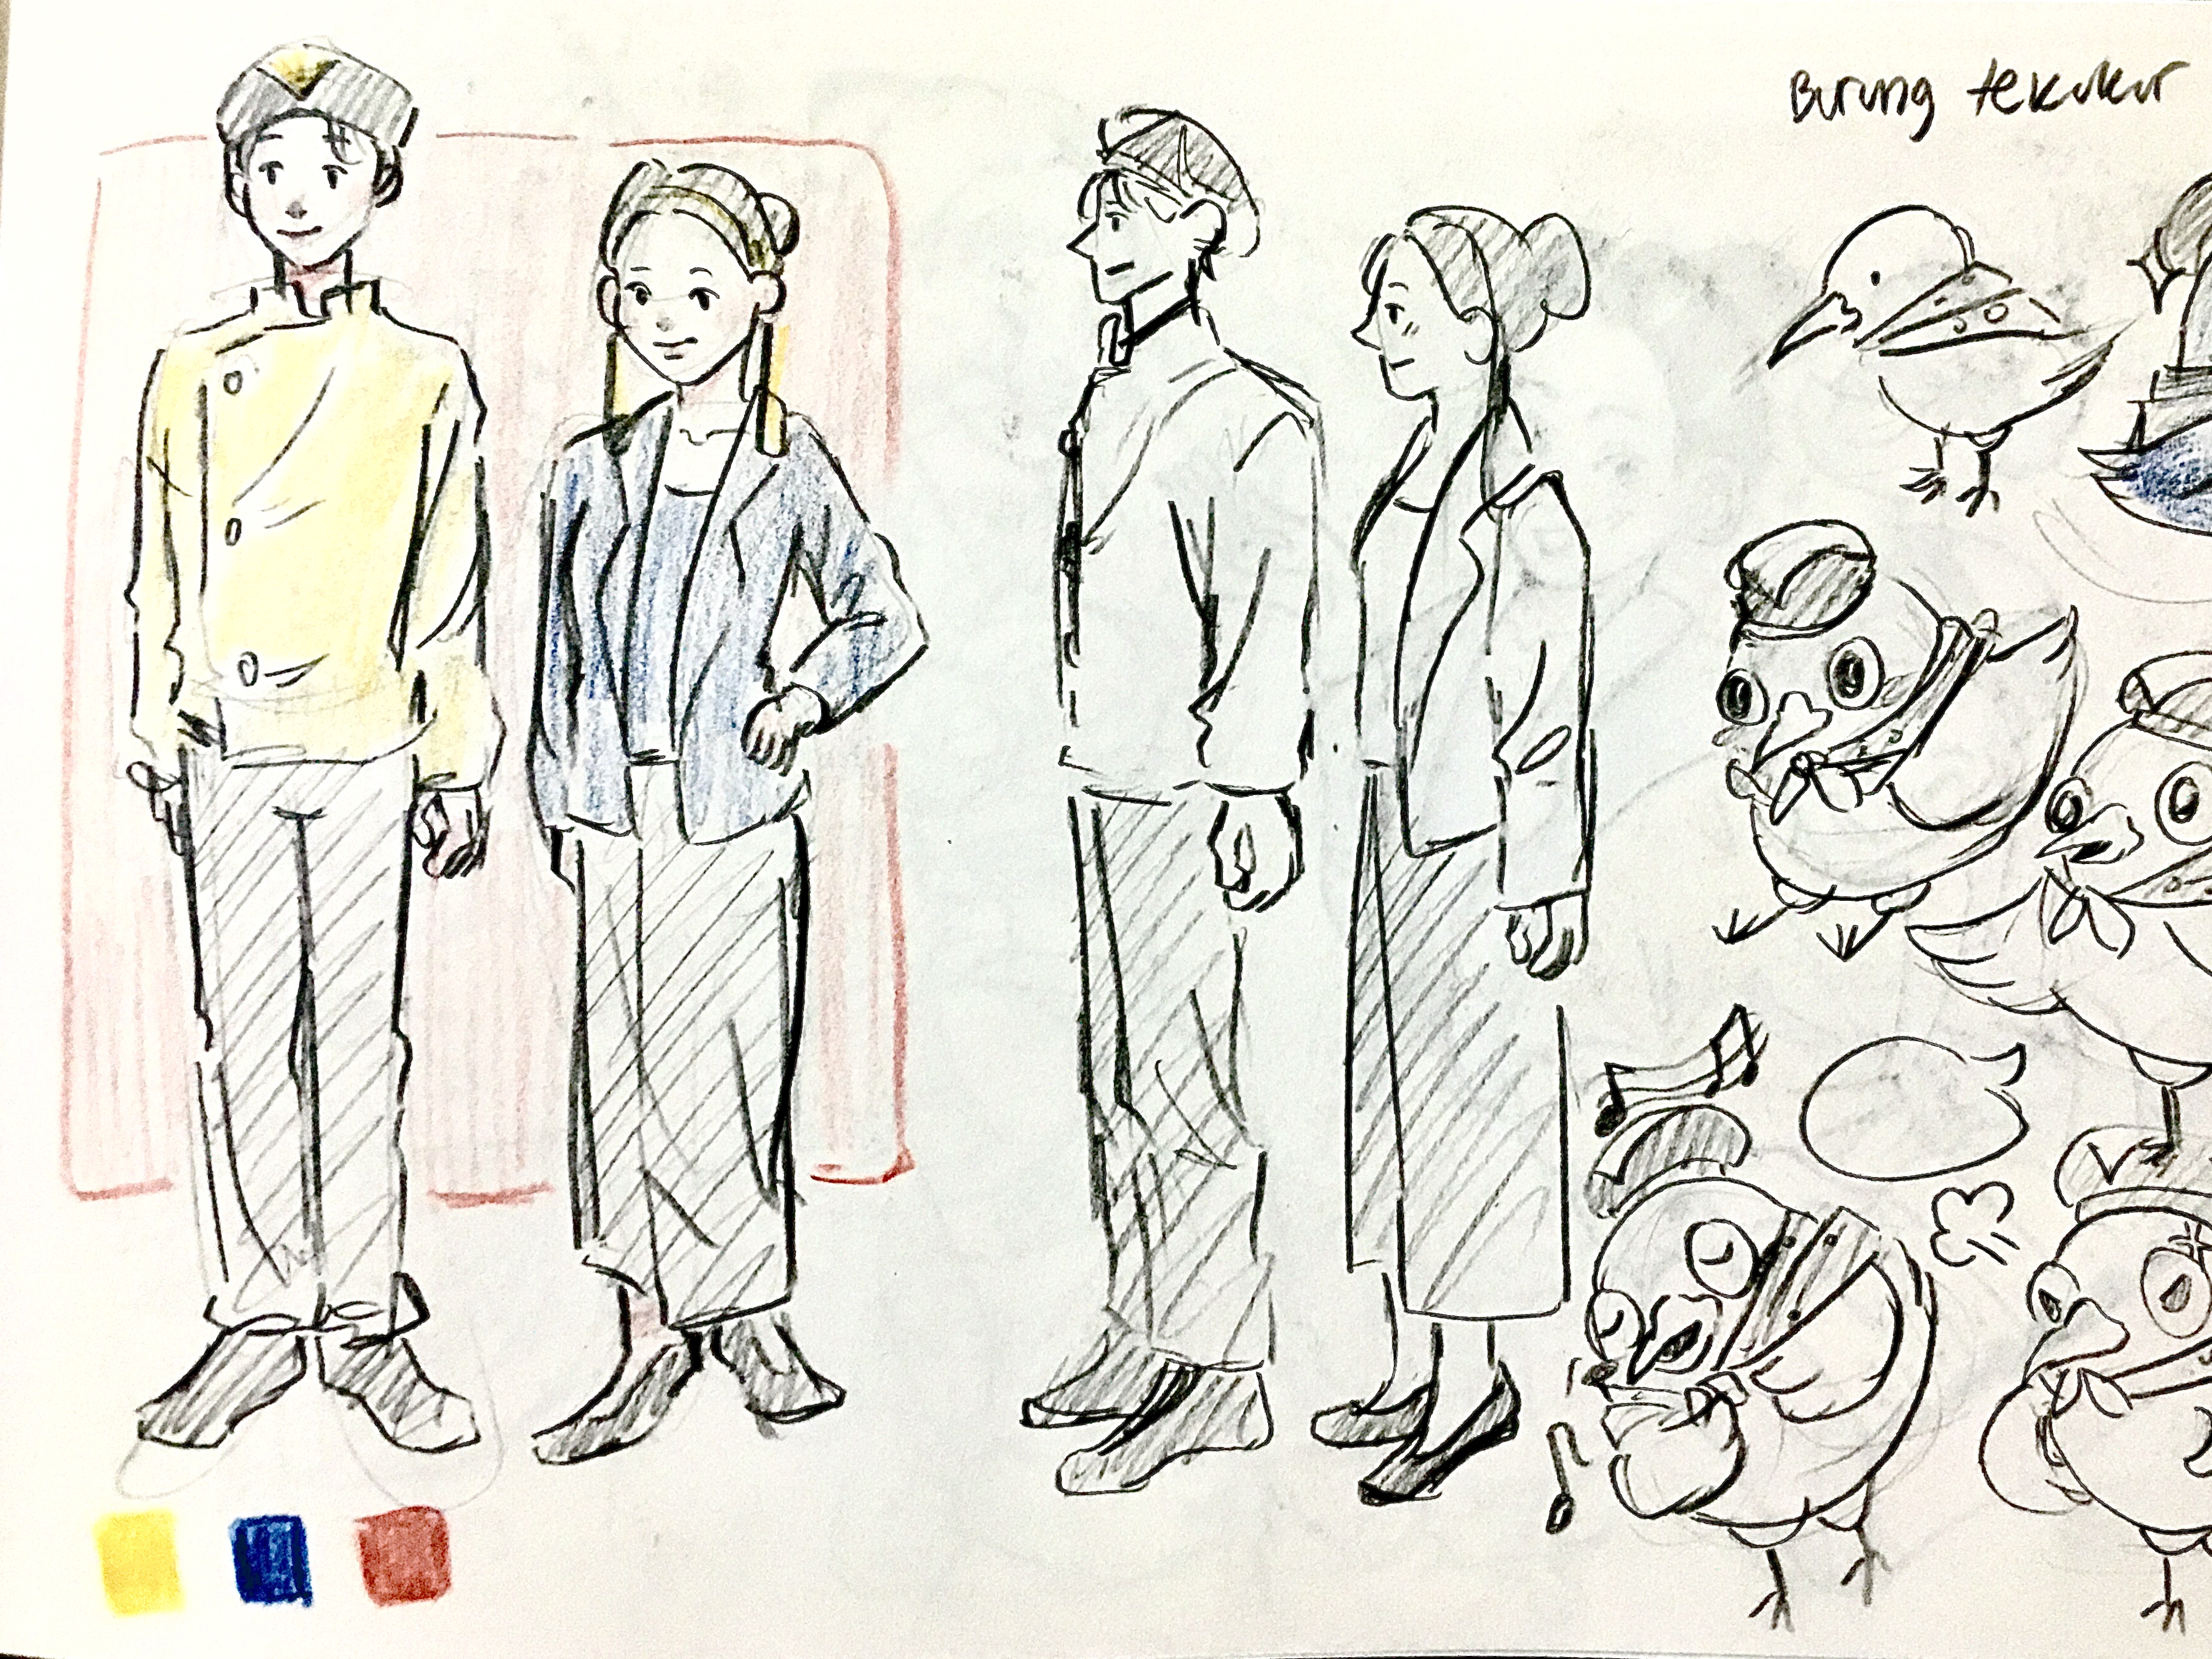 Burung tekukur